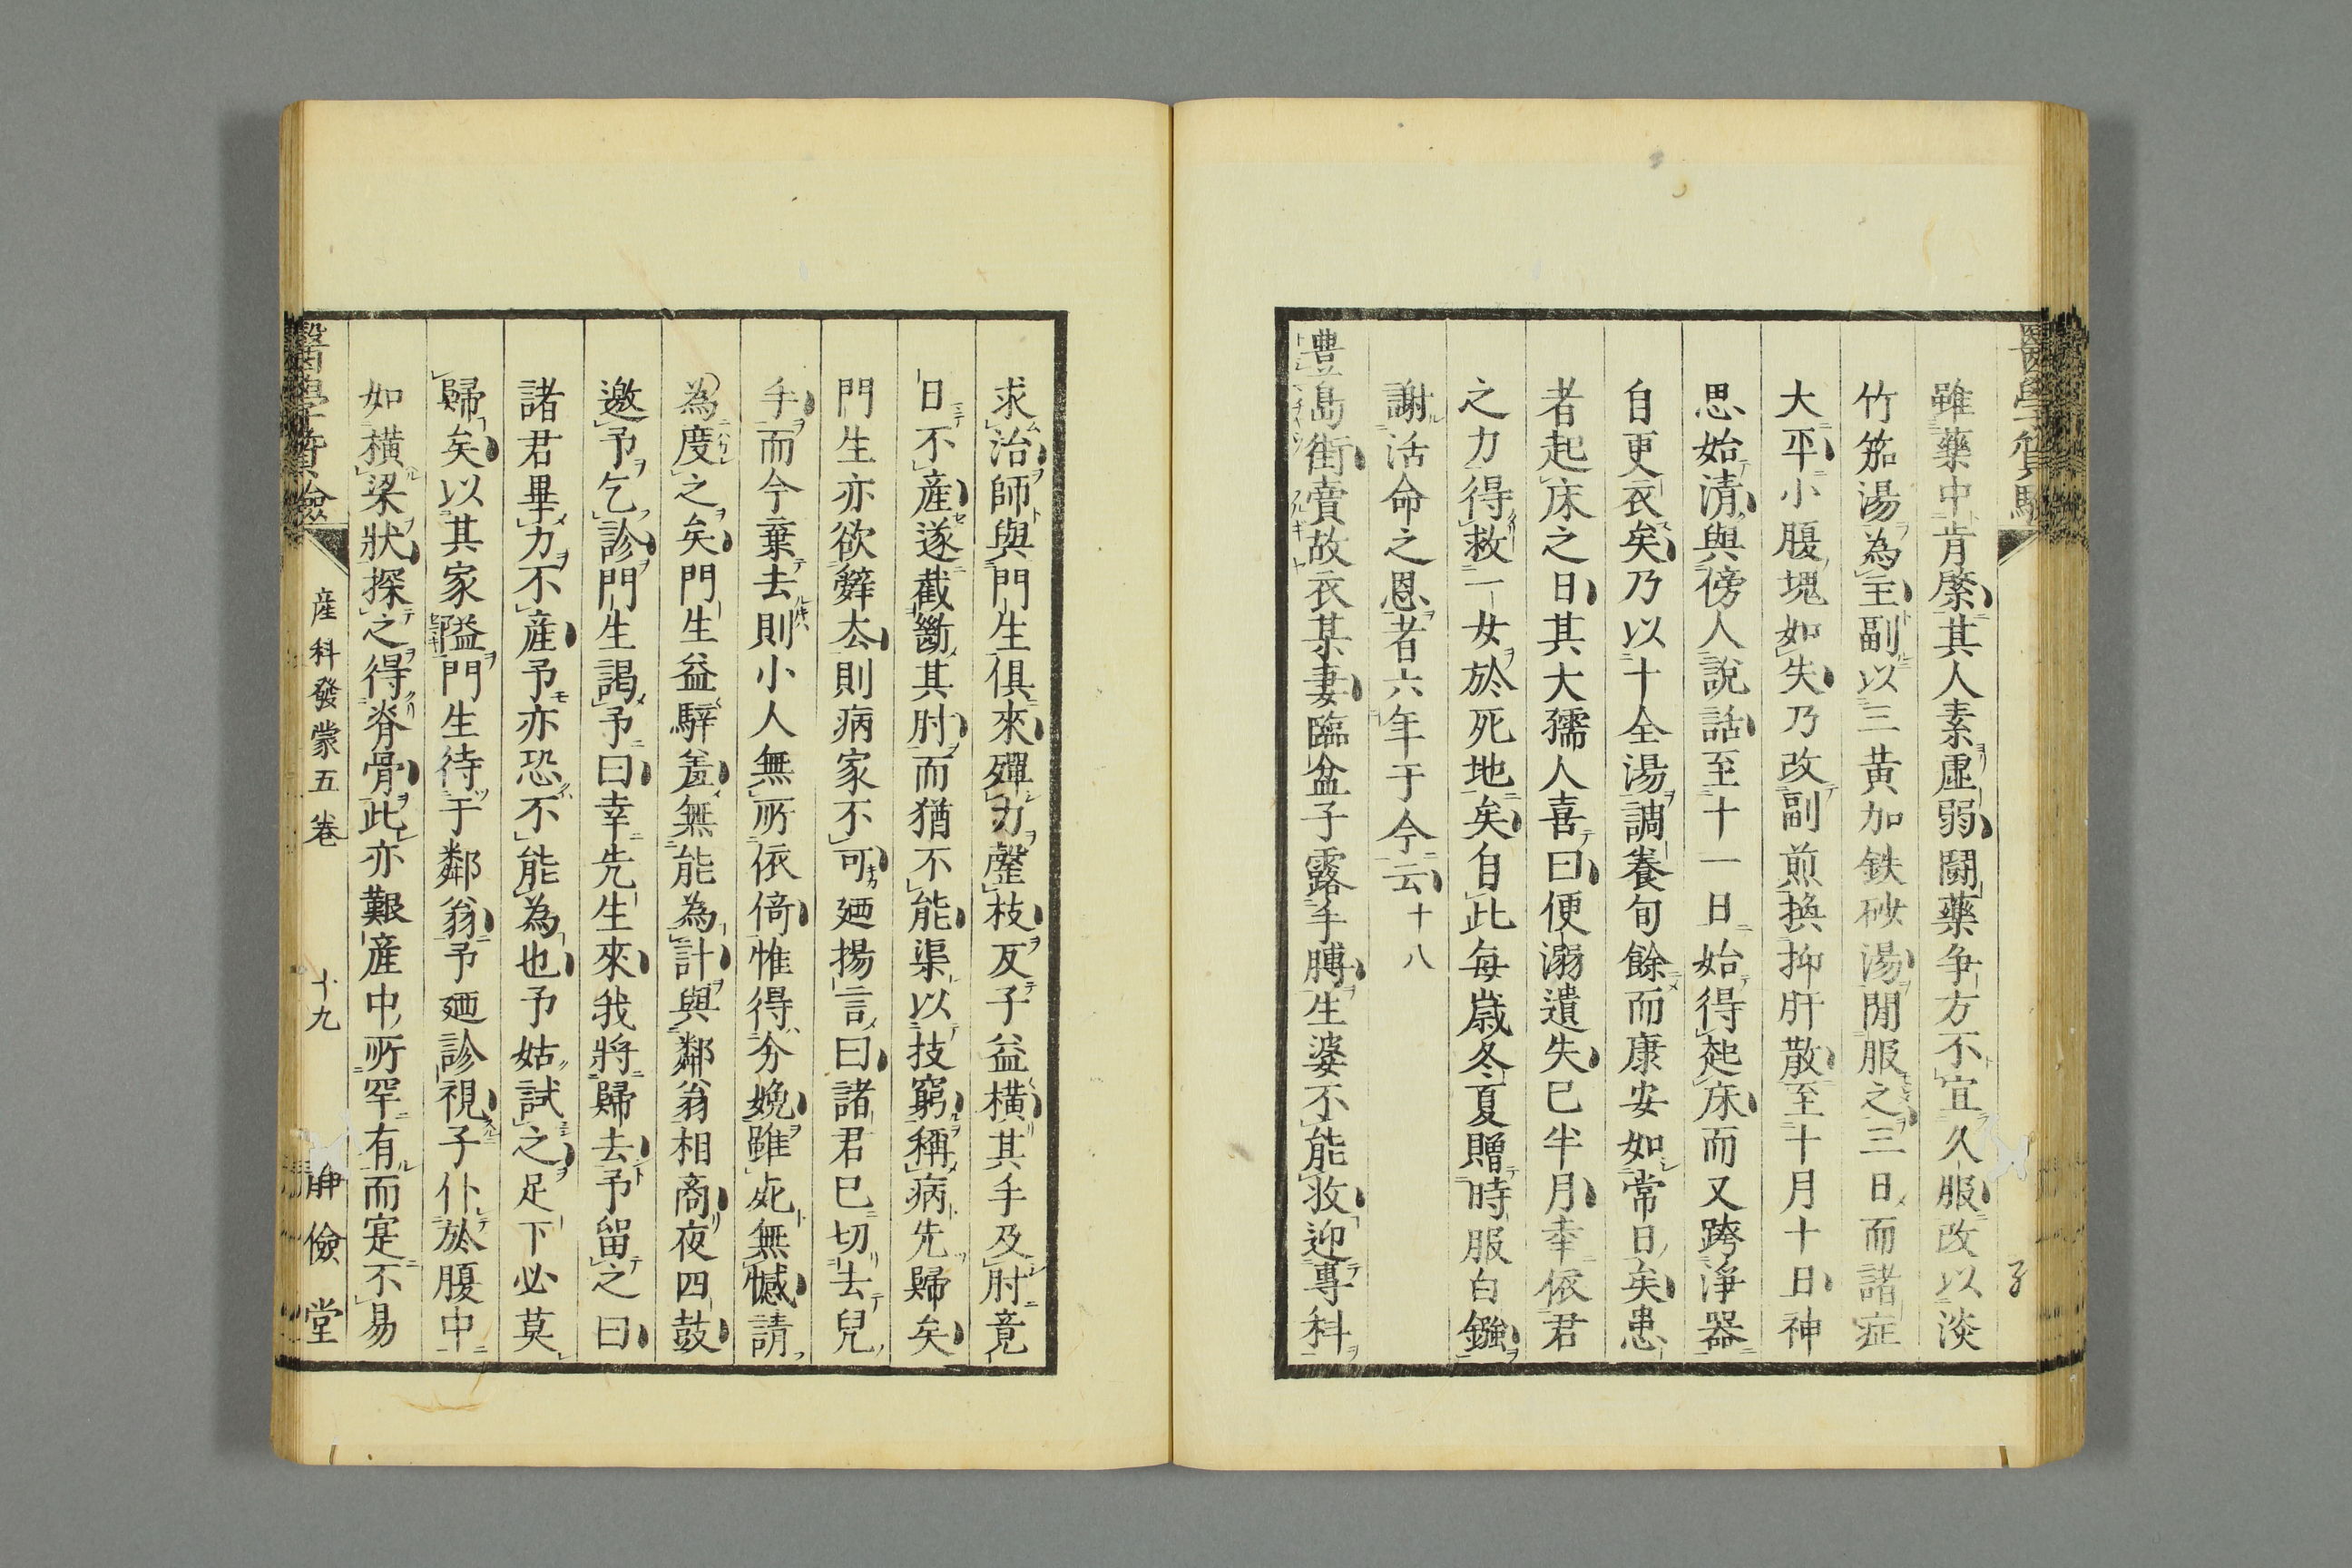 雖藥中肯綮其人素虛弱鬪藥争方不宜久服改以淡
竹茹湯為主副以三黃加鉄砂湯間服之三日而諸症
大平小腹塊如失乃改副煎換抑肝散至十月十日神
思始清與傍人說話至十一日始得起床而又跨淨器
自更衣矣乃以十全湯調養旬餘而康安如常日矣患
者起床之日其大孺人喜曰便溺遺失已半月幸依君
之力得救一女於死地矣自此每歲冬夏贈時服白鏹
謝活命之恩者六年于今云十八
豊島街賣故衣某妻臨盆子露手膊生婆不能收迎專科
求治師與門生俱來殫力罄枝反子益橫其手及肘竟
日不産遂截斷其肘而猶不能渠以技窮稱病先歸矣
門生亦欲辭去則病家不可廼揚言曰諸君已切去兒
手而今棄去則小人無所依倚惟得分娩雖死無憾請
為度之矣門生益騂羞無能為計與鄰翁相商夜四鼓
邀予乞診門生謁予曰幸先生來我將歸去予留之曰
諸君畢力不産予亦恐不能為也予姑試之足下必莫
歸矣以其家隘門生待于鄰翁予廼診視子仆於腹中
如橫梁狀探之得脊骨此亦艱産中所罕有而寔不易
産科發蒙五卷 十九 靜儉堂